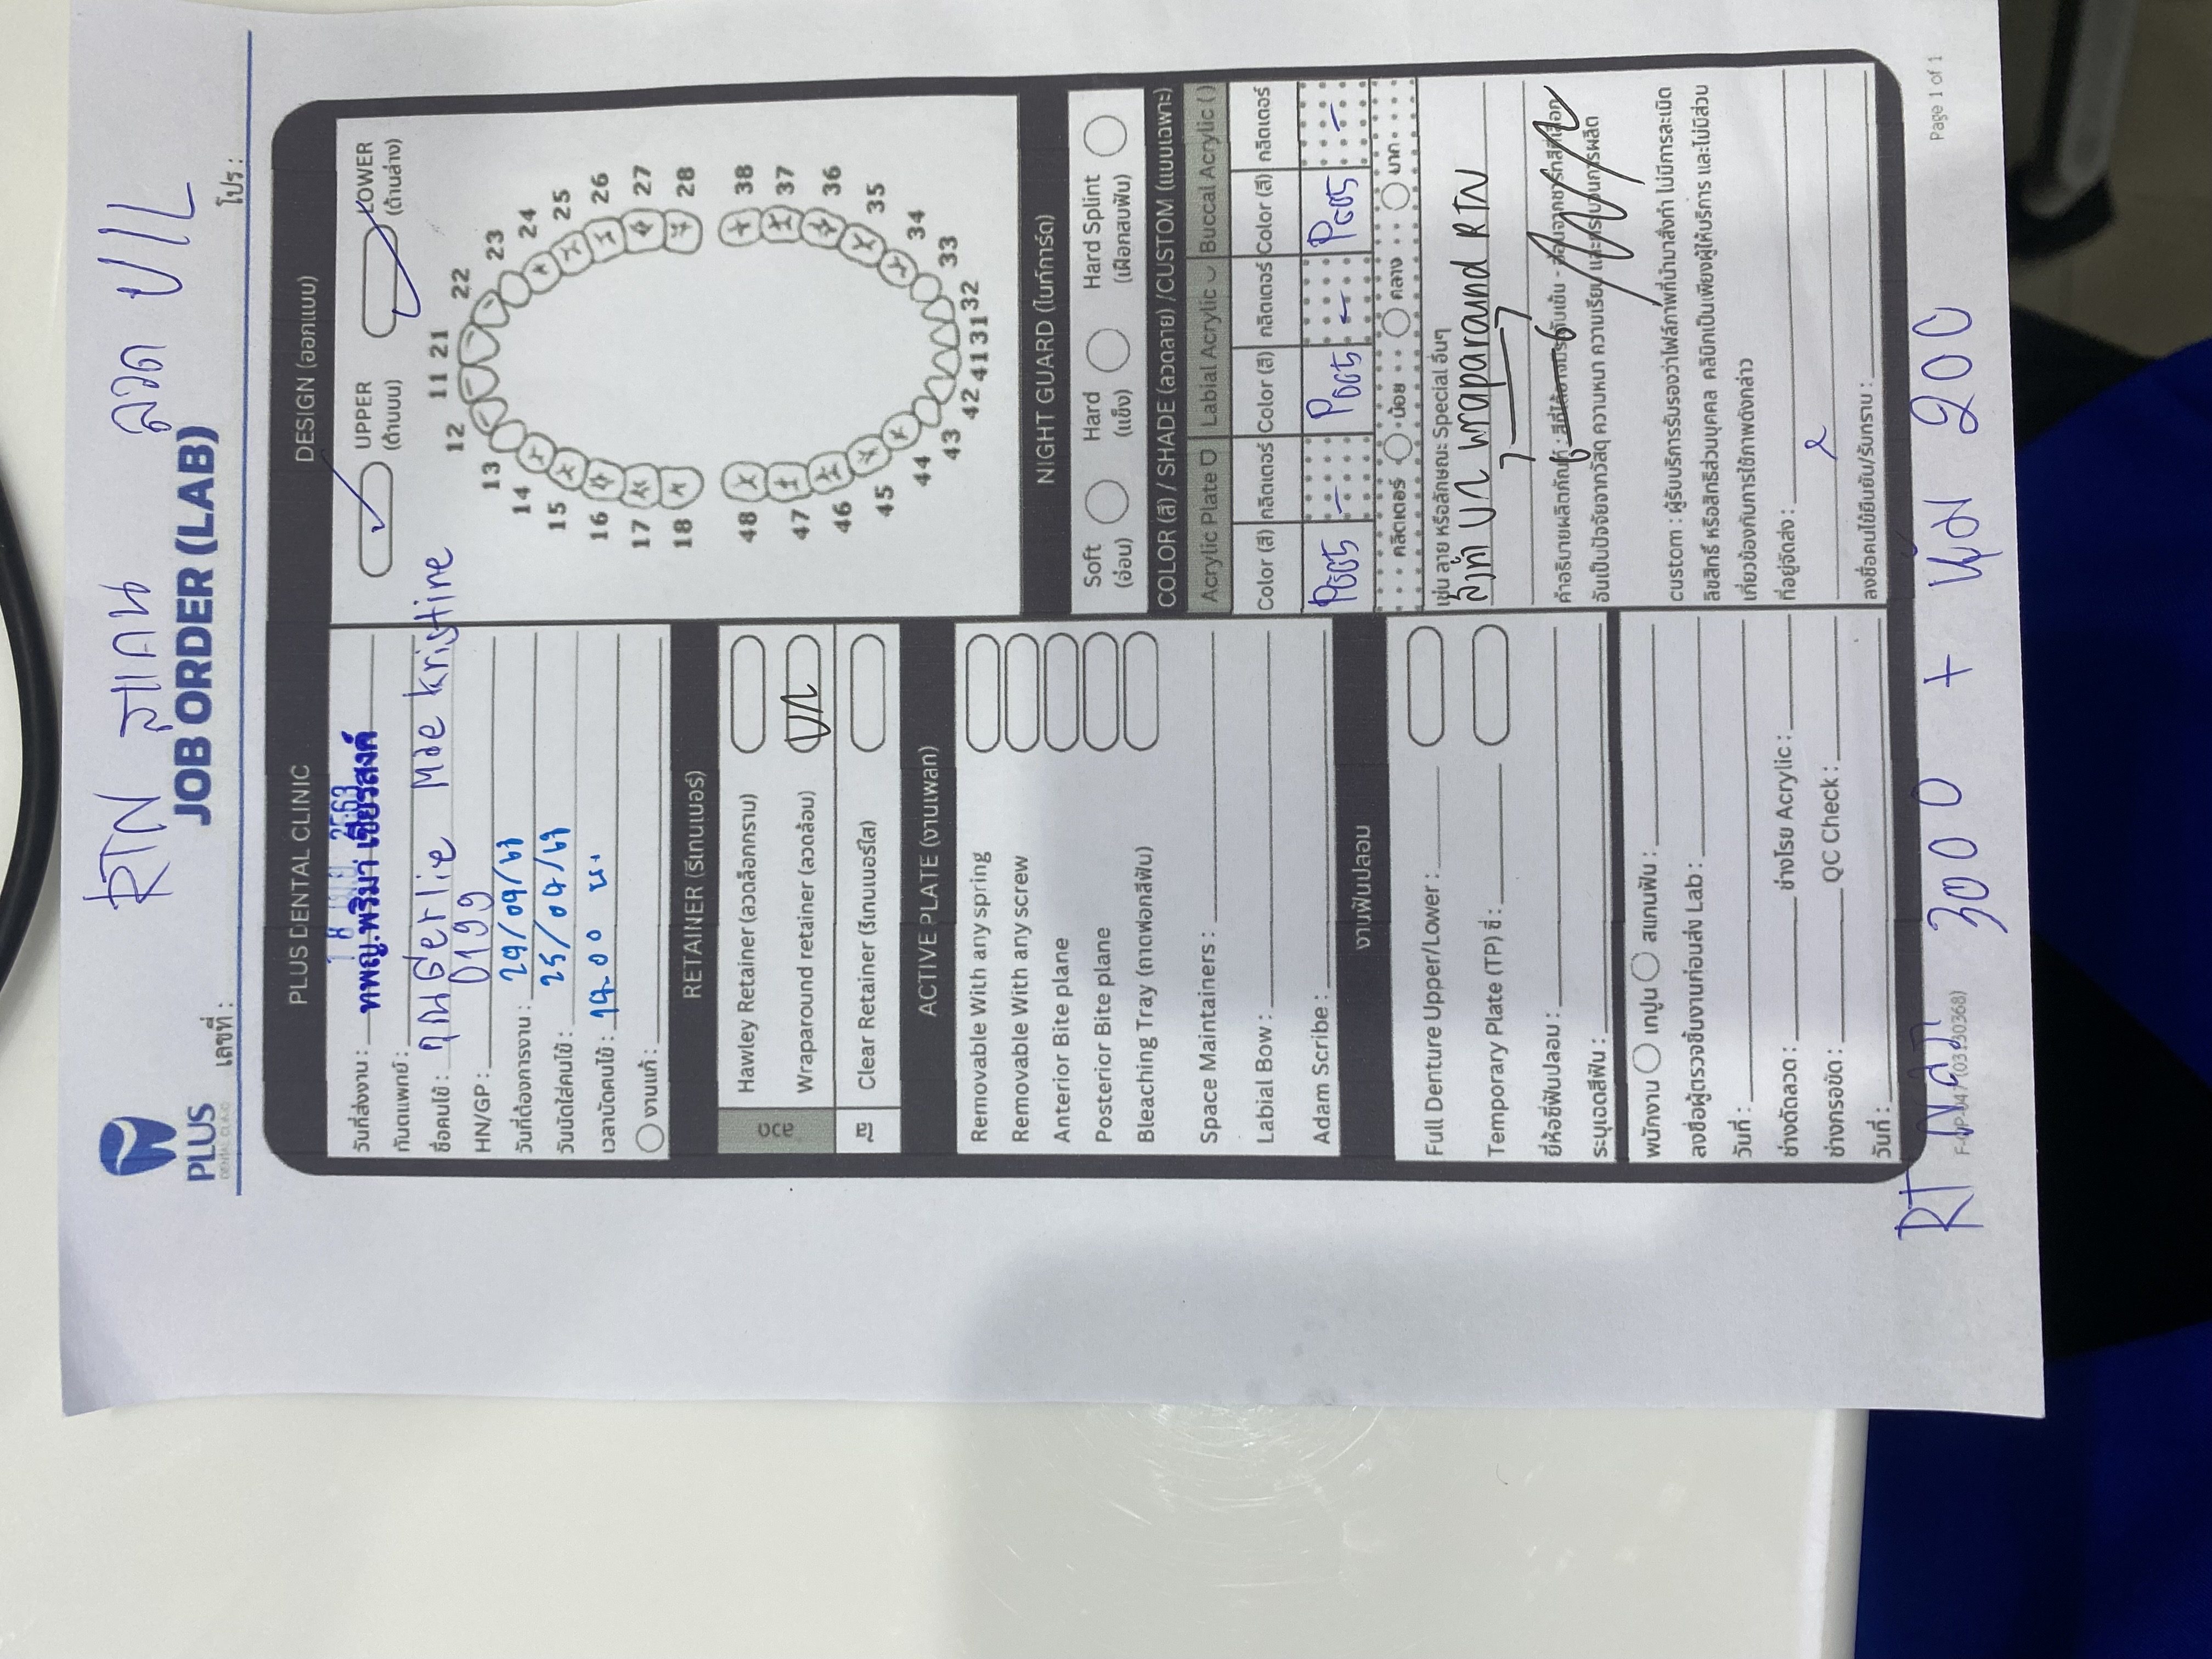 RTN สแกน ลวด U/L
PLUS
DENTAL CLINIC
JOB ORDER (LAB)
เลขที่ :
โปร :
PLUS DENTAL CLINIC
วันที่ส่งงาน : 18 2568
ทันตแพทย์ : ทพญ.พริมา เชียรสงค์
ชื่อคนไข้ : คุณ Gerlie Mae Kristine
HN/GP : 0199
วันที่ต้องการงาน : 24/04/68
วันนัดใส่คนไข้ : 25/04/68
เวลานัดคนไข้ : 14.00 น.
งานแก้ :
DESIGN (ออกแบบ)
UPPER (ด้านบน)
LOWER (ด้านล่าง)
11 21
12 22
13 23
14 24
15 25
16 26
17 27
18 28
48 38
47 37
46 36
45 35
44 34
43 33
42 41 31 32
RETAINER (รีเทนเนอร์)
ลวด
Hawley Retainer (ลวดล็อกกราม)
Wraparound retainer (ลวดล้อม) U/L
ใส
Clear Retainer (รีเทนเนอร์ใส)
ACTIVE PLATE (งานเพลท)
Removable With any spring
Removable With any screw
Anterior Bite plane
Posterior Bite plane
Bleaching Tray (ถาดฟอกสีฟัน)
Space Maintainers :
Labial Bow :
Adam Scribe :
งานฟันปลอม
Full Denture Upper/Lower :
Temporary Plate (TP) ซี่ :
ยี่ห้อซี่ฟันปลอม :
ระบุเฉดสีฟัน :
พนักงาน เทปูน สแกนฟัน :
ลงชื่อผู้ตรวจชิ้นงานก่อนส่ง Lab :
วันที่ :
ช่างดัดลวด : ช่างโรย Acrylic :
ช่างกรอขัด : QC Check :
วันที่ :
NIGHT GUARD (ไนท์การ์ด)
Soft (อ่อน)
Hard (แข็ง)
Hard Splint (เฝือกสบฟัน)
COLOR (สี) / SHADE (ลวดลาย) /CUSTOM (แบบเฉพาะ)
Acrylic Plate Labial Acrylic Buccal Acrylic ( )
Color (สี) กลิตเตอร์ Color (สี) กลิตเตอร์ Color (สี) กลิตเตอร์
PGG5 - PGG5 - PGG5 -
กลิตเตอร์ น้อย กลาง มาก
เช่น ลาย หรือลักษณะ Special อื่นๆ
สั่งทำ U/L wraparound RTN
7 7
6 6
คำอธิบายผลิตภัณฑ์ : สีที่ได้อาจมีระดับเข้ม - อ่อนจากชาร์ทสีที่เลือก
อันเป็นปัจจัยจากวัสดุ ความหนา ความเรียบ และกระบวนการผลิต
custom : ผู้รับบริการรับรองว่าไฟล์ภาพที่นำมาสั่งทำ ไม่มีการละเมิด
ลิขสิทธิ์ หรือสิทธิส่วนบุคคล คลินิกเป็นเพียงผู้ให้บริการ และไม่มีส่วน
เกี่ยวข้องกับการใช้ภาพดังกล่าว
ที่อยู่จัดส่ง :
ลงชื่อคนไข้ยืนยัน/รับทราบ :
RT 3000 + หุ้ม 200
F-OP-047 (03130368)
Page 1 of 1